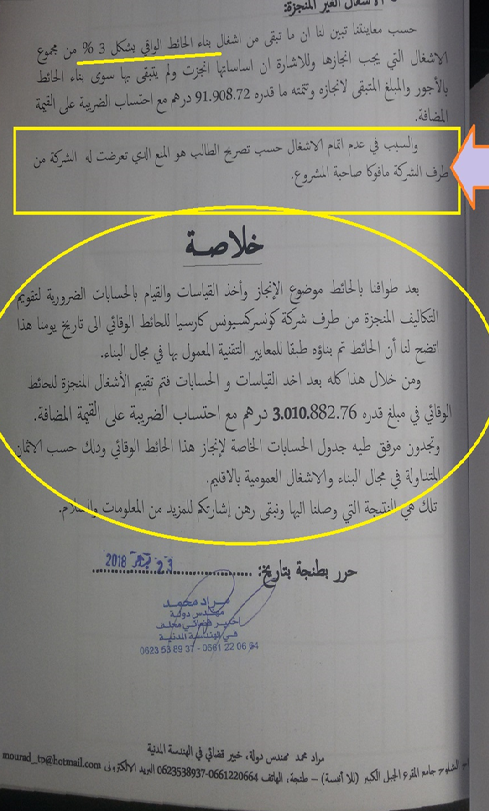 الاشغال الغير المنجزة:
حسب معاينتنا تبين لنا ان ما تبقى من أشغال بناء الحائط الواقي يشكل 3 % من مجموع
الاشغال التي يجب انجازها وللاشارة ان اساساتها انجزت ولم يتبقى بها سوى بناء الحائط
بالأجور والمبلغ المتبقى لانجازه وتتمته ما قدره 91.908.72 درهم مع احتساب الضريبة على القيمة
المضافة.
والسبب في عدم اتمام الاشغال حسب تصريح الطالب هو المنع الذي تعرضت له الشركة من
طرف الشركة مافوكا صاحبة المشروع.
خلاصة
بعد طوافنا بالحائط موضوع الإنجاز وأخذ القياسات والقيام بالحسابات الضرورية لتقويم
التكاليف المنجزة من طرف شركة كونسركسيونس كارسيا للحائط الوقائي الى تاريخ يومنا هذا
اتضح لنا أن الحائط تم بناؤه طبقا للمعايير التقنية المعمول بها في مجال البناء.
ومن خلال هذا كله بعد اخد القياسات و الحسابات فتم تقييم الأشغال المنجزة للحائط
الوقائي في مبلغ قدره 3.010.882.76 درهم مع احتساب الضريبة على القيمة المضافة.
وتجدون مرفق طيه جدول الحسابات الخاصة لإنجاز هذا الحائط الوقائي ودلك حسب الاثمان
المتداولة في مجال البناء والاشغال العمومية بالاقليم.
تلك هي النتيجة التي وصلنا اليها ونبقى رهن إشارتكم للمزيد من المعلومات والسلام.
حرر بطنجة بتاريخ: 23 2018
مراد محمد
مهندس دولة
خبير قضائي محلف
في الهندسة المدنية
0623 53 89 37 - 0661 22 06 64
مراد محمد مهندس دولة، خبير قضائي في الهندسة المدنية
جامع المقراع الجبل الكبير (للا آفيسة) – طنجة، الهاتف 0661220664-0623538937 البريد الالكتروني mourad_tp@hotmail.com